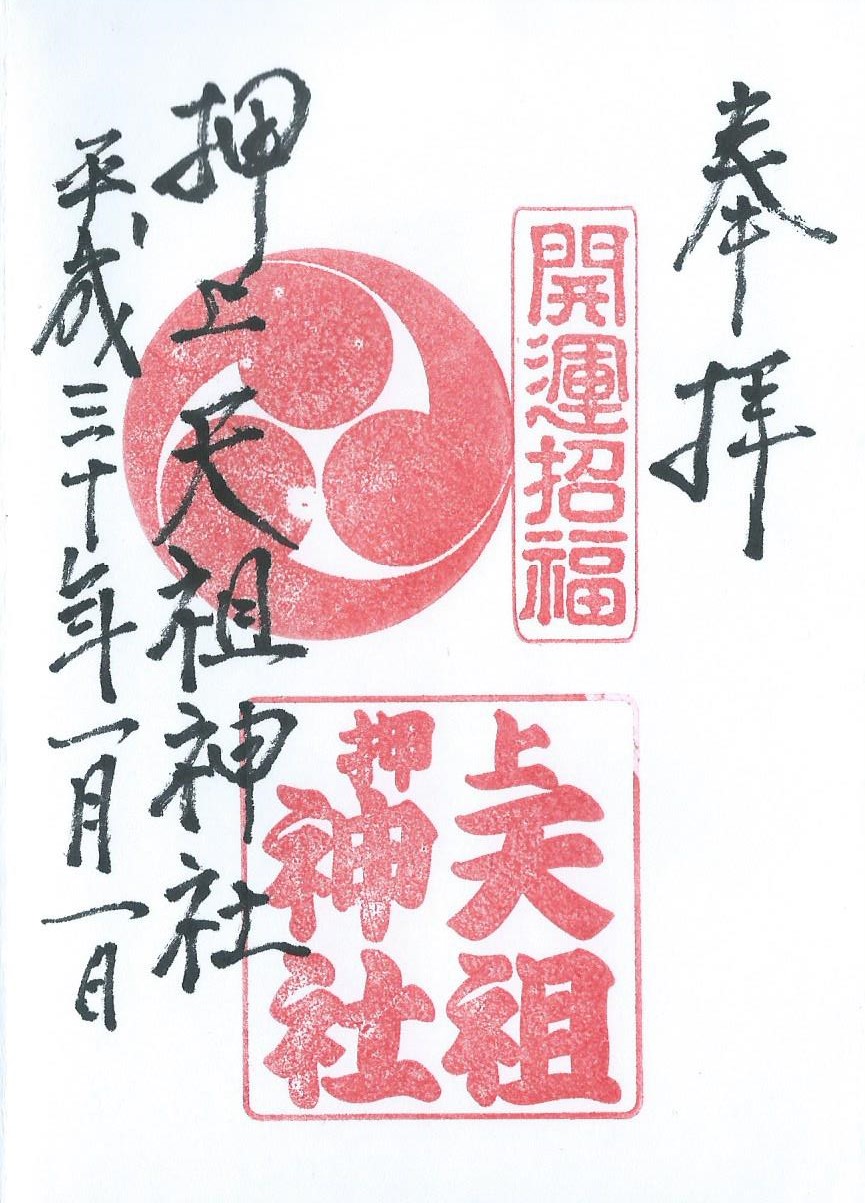 奉拝
開運招福
押上天祖神社
平成三十年一月一日
押上
天祖
神社